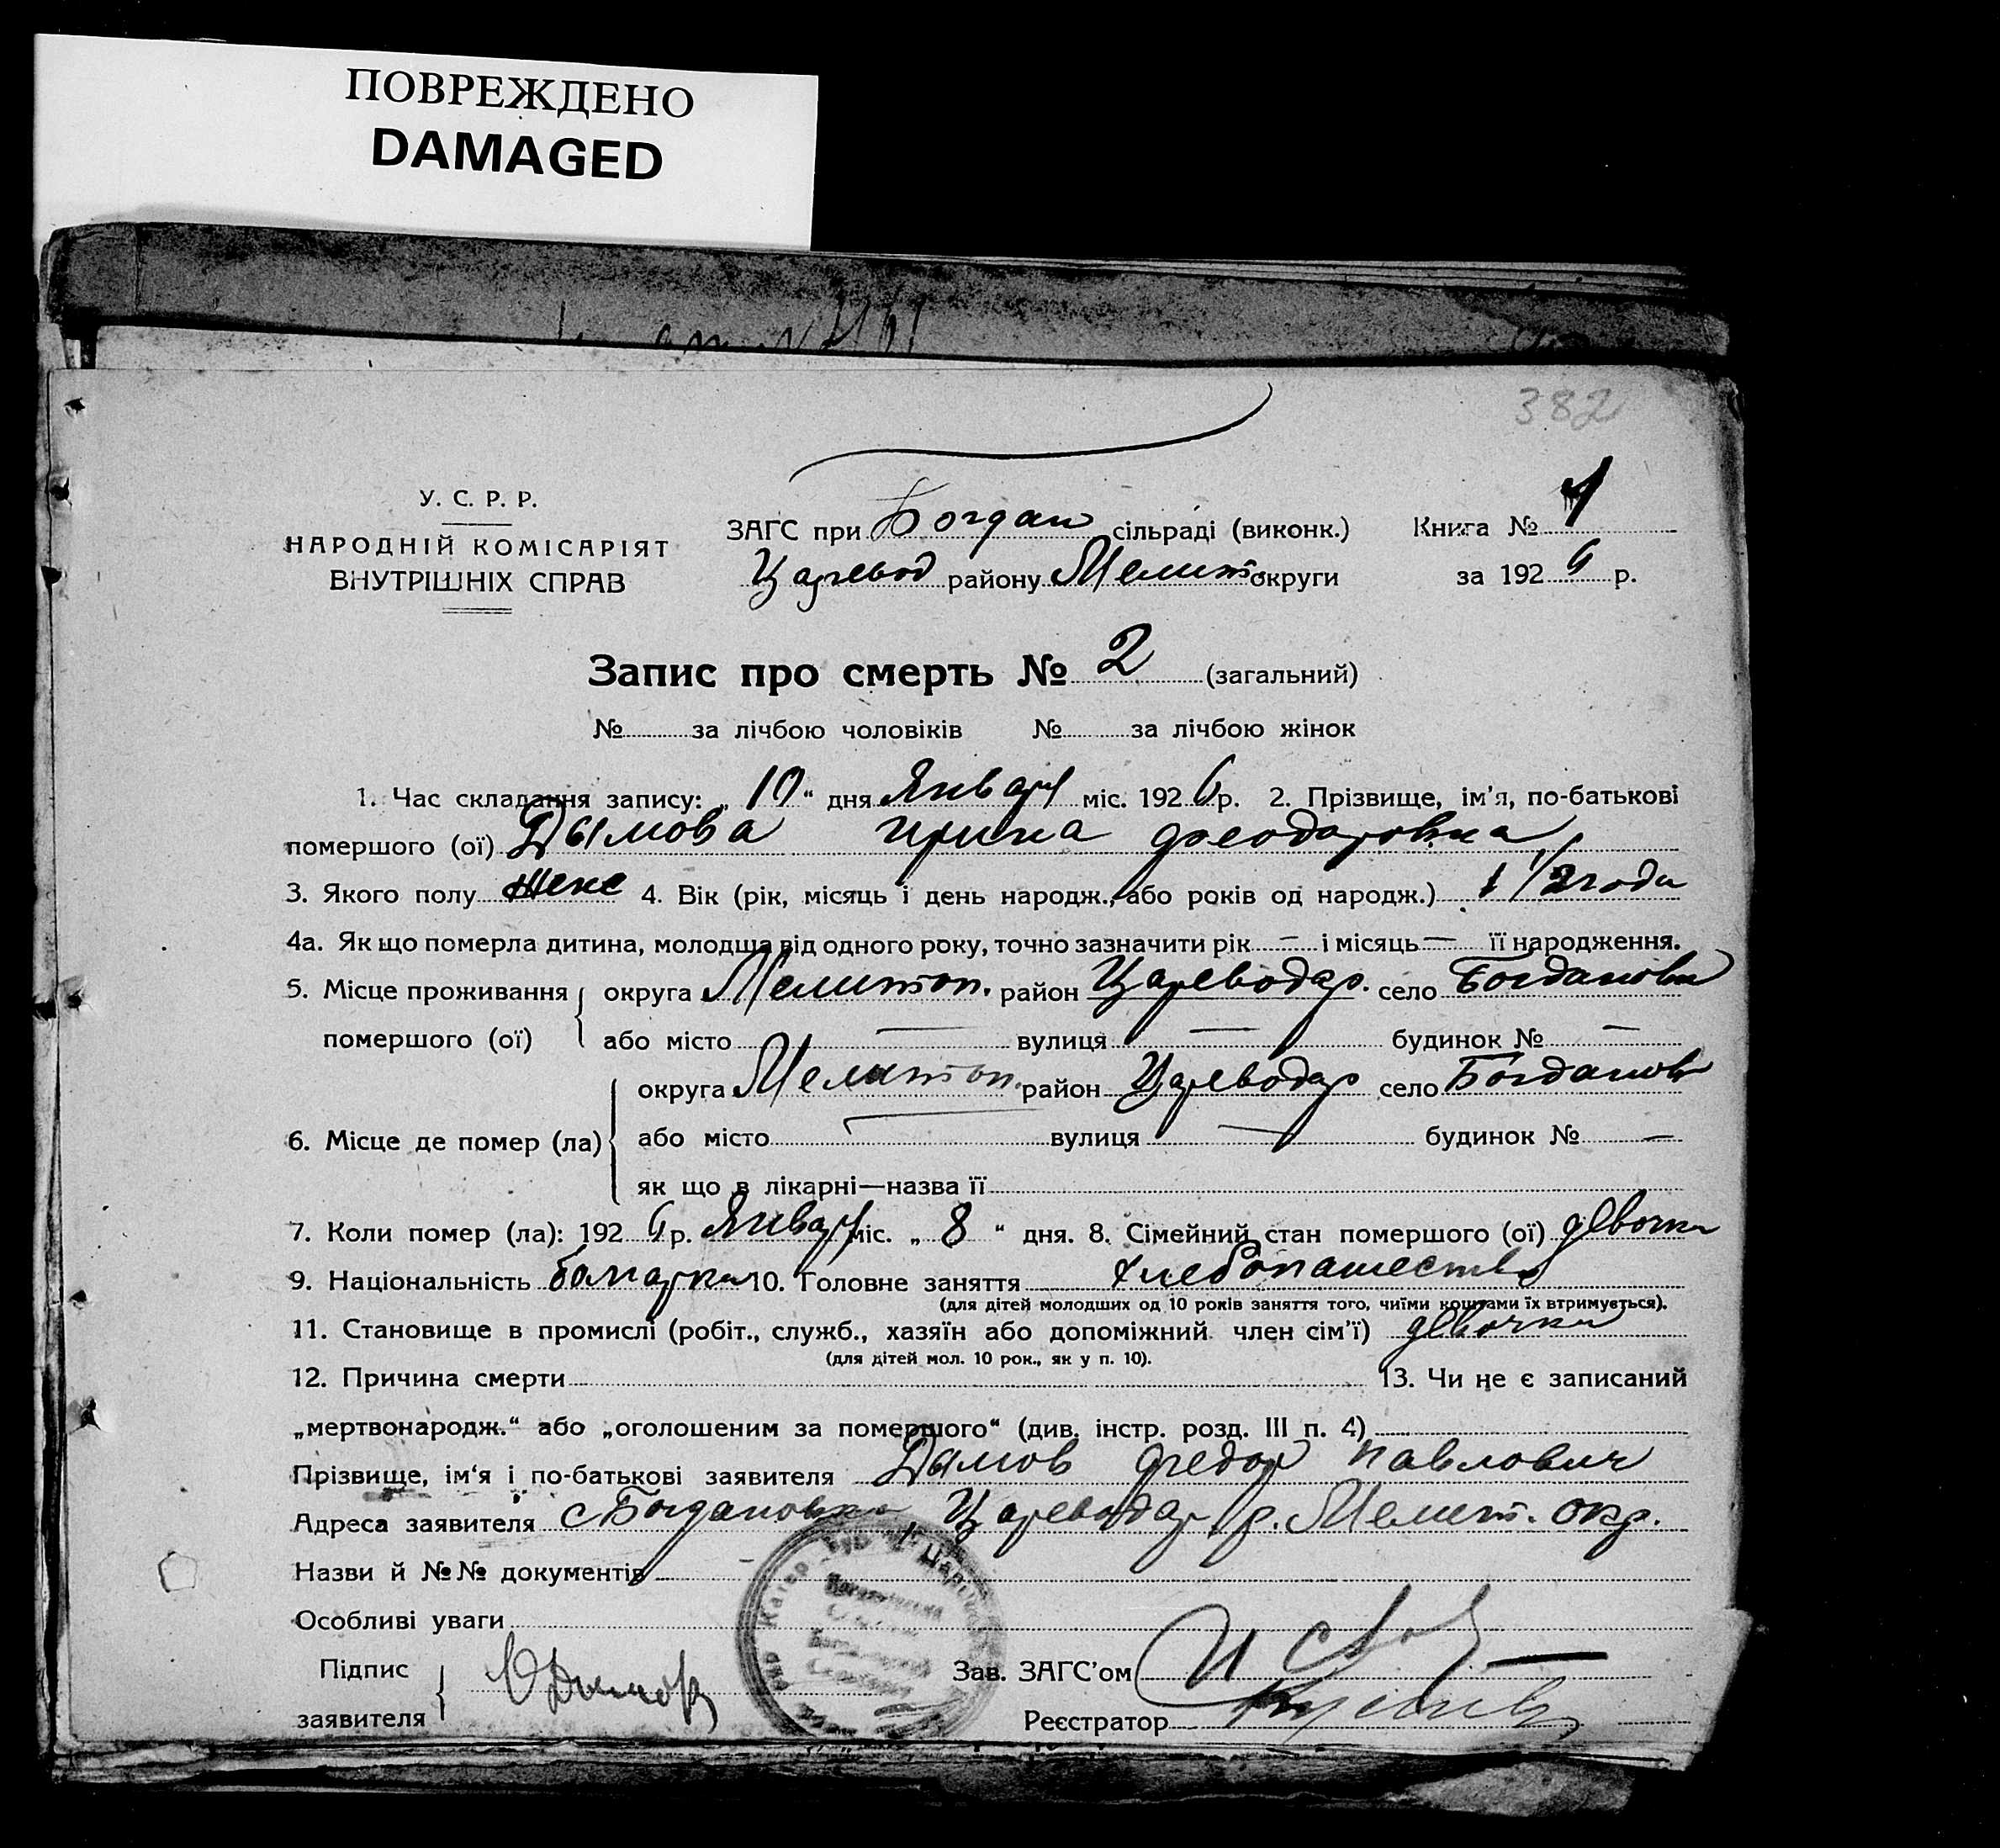 ПОВРЕЖДЕНО
DAMAGED
382
У. С. Р. Р.
НАРОДНІЙ КОМІСАРІЯТ
ВНУТРІШНІХ СПРАВ
ЗАГС при Богдан сільраді (виконк.) Книга № 1
Царевод району Мелит округи за 1926 р.
Запис про смерть № 2 (загальний)
№ за лічбою чоловіків № за лічбою жінок
1. Час складання запису: „10“ дня Январ міс. 1926 р. 2. Прізвище, ім'я, по-батькові
помершого (ої) Дымова Ирина Феодоровна
3. Якого полу женс 4. Вік (рік, місяць і день народж., або років од народж.) 1 1/2 года
4а. Як що померла дитина, молодша від одного року, точно зазначити рік — і місяць — її народження.
5. Місце проживання округа Мелитоп. район Цареводар. село Богдановка
помершого (ої) або місто — вулиця — будинок № —
округа Мелитоп. район Цареводар село Богданов
6. Місце де помер (ла) або місто — вулиця — будинок № —
як що в лікарні—назва її
7. Коли помер (ла): 1926 р. Январ міс. „8“ дня. 8. Сімейний стан помершого (ої) девочка
9. Національність болгарка 10. Головне заняття хлебопашество
(для дітей молодших од 10 років заняття того, чиїми коштами їх втримується).
11. Становище в промислі (робіт., служб., хазяїн або допоміжний член сім'ї) девочка
(для дітей мол. 10 рок., як у п. 10).
12. Причина смерти 13. Чи не є записаний
„мертвонародж.“ або „оголошеним за помершого“ (див. інстр. розд. III п. 4)
Прізвище, ім'я і по-батькові заявителя Дымов Федор Павлович
Адреса заявителя с Богдановка Цареводар р. Мелит. окр.
Назви й №№ документів
Особливі уваги
Підпис
заявителя Ф Дымов
Зав. ЗАГС'ом
Реєстратор